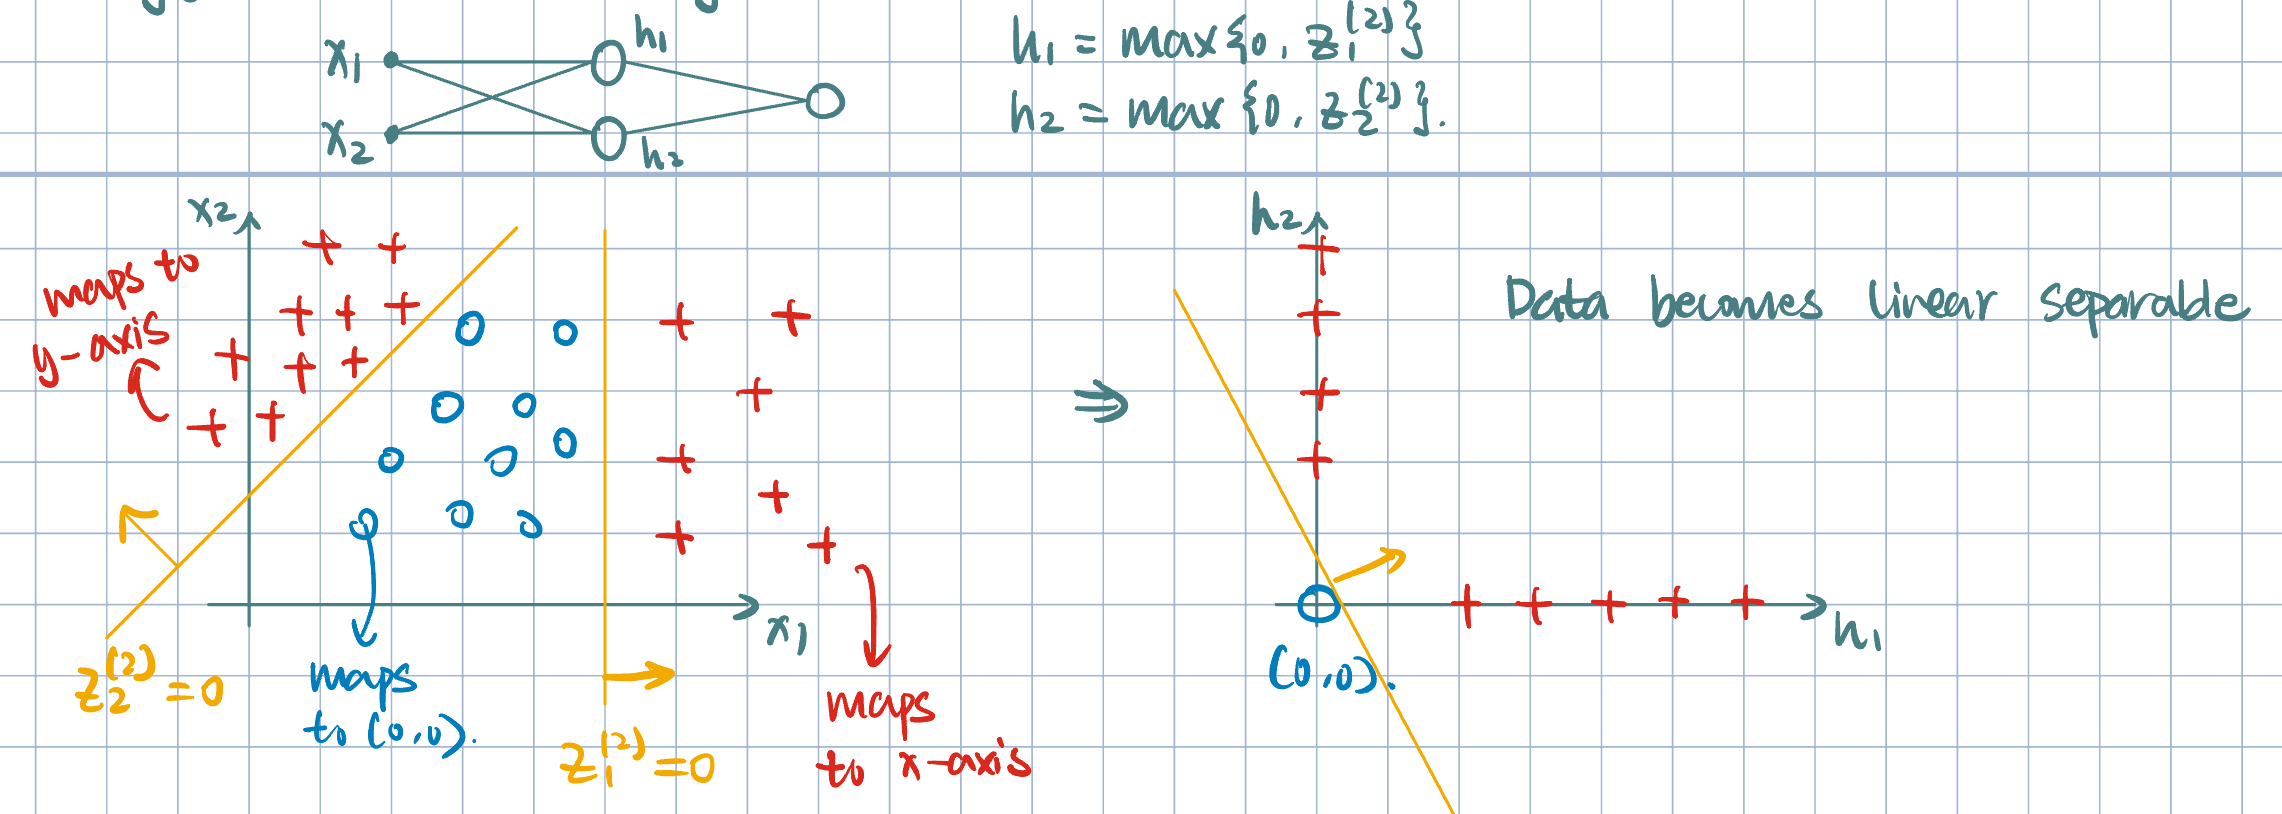 x₁
x₂
h₁
h₂
h₁ = max{0, z₁⁽²⁾}
h₂ = max{0, z₂⁽²⁾}.
x₂
maps to
y-axis
z₂⁽²⁾ = 0
maps
to (0,0).
z₁⁽²⁾ = 0
x₁
maps
to x-axis
⇒
h₂
h₁
(0,0).
Data becomes linear separable